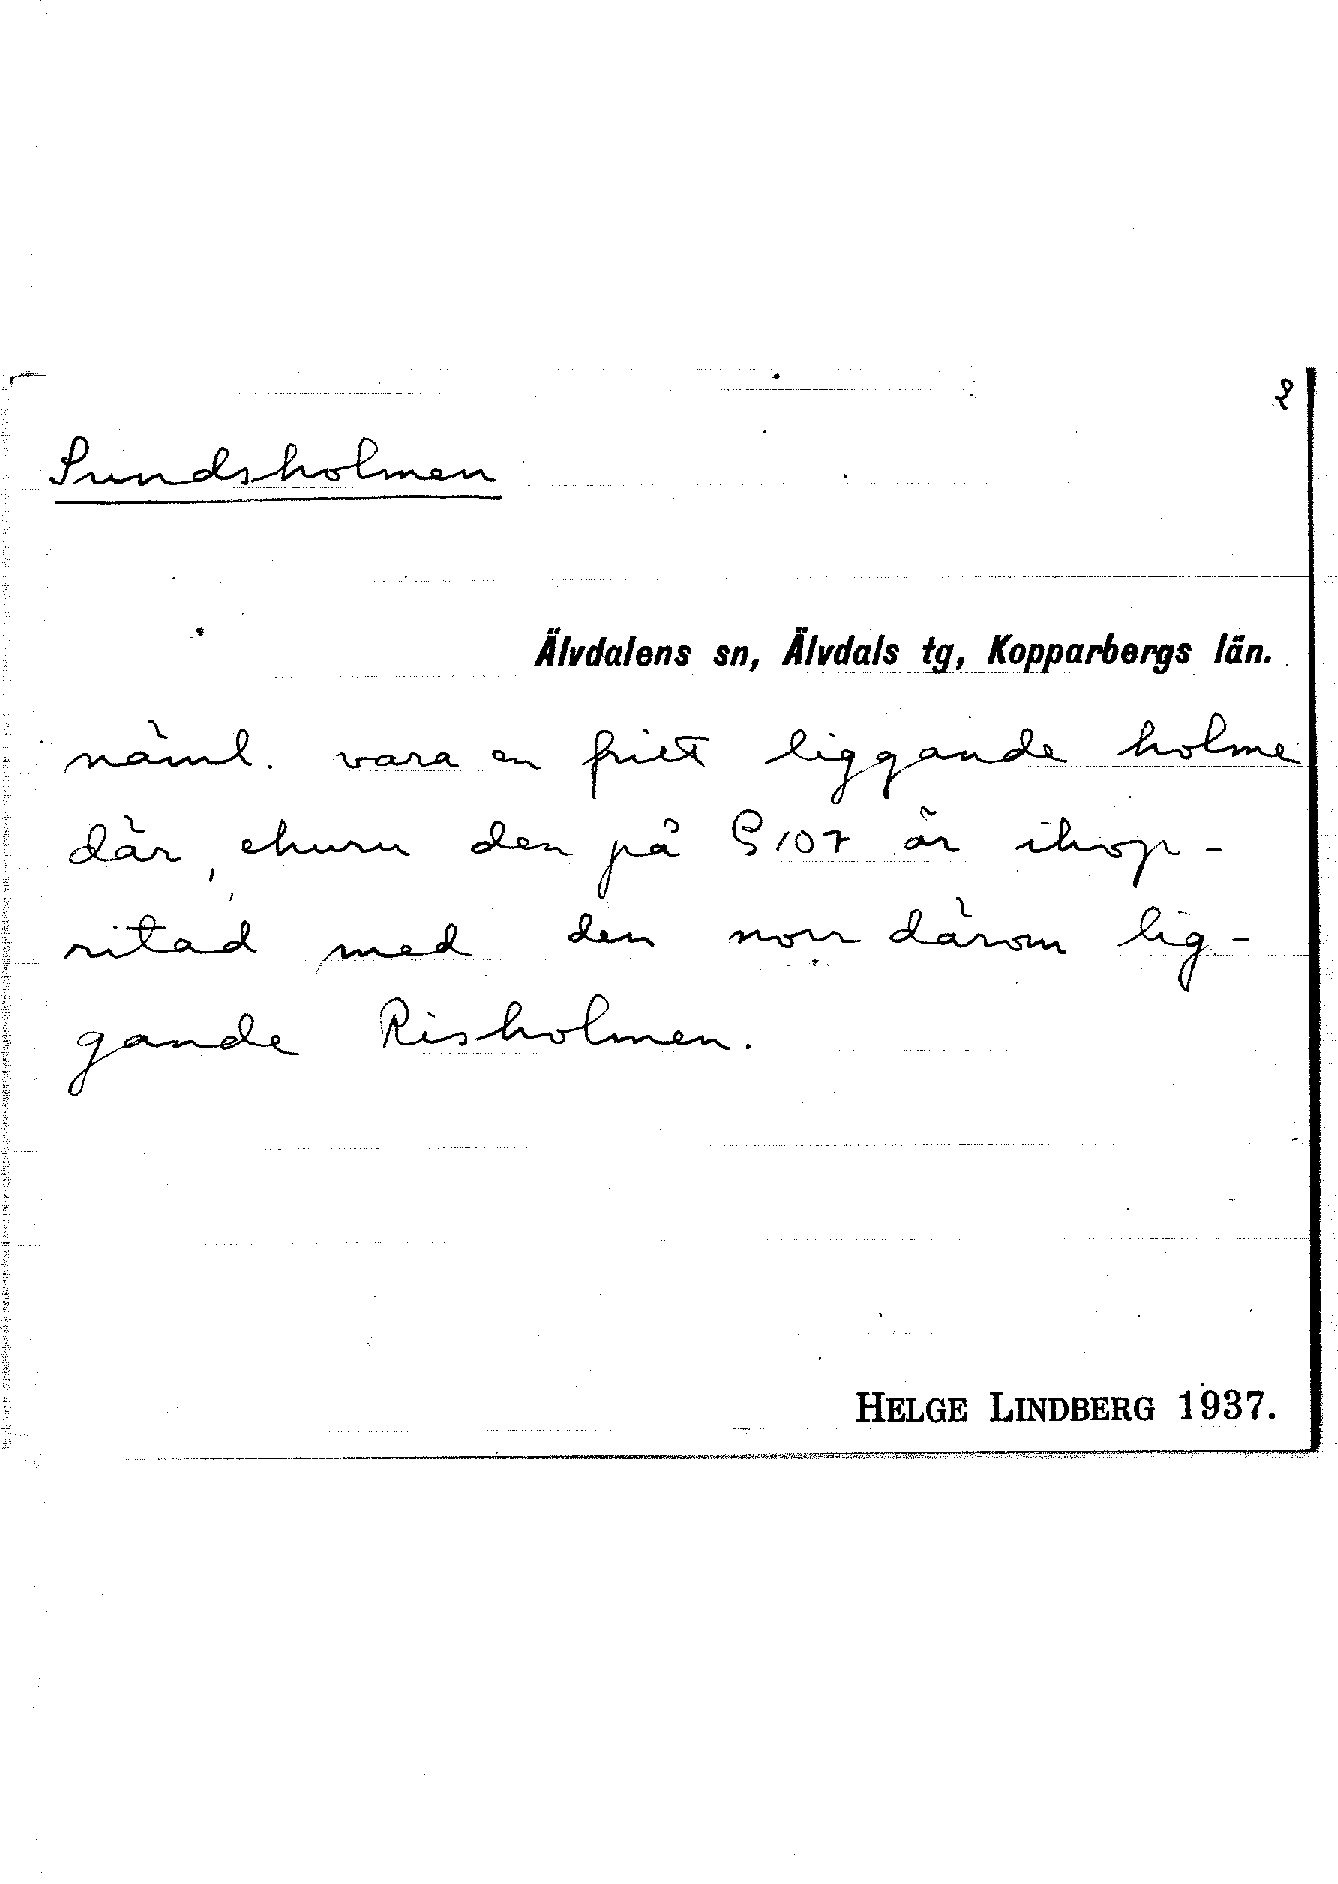 2
Sundsholmen
Älvdalens sn, Älvdals tg, Kopparbergs län.
näml. vara en fritt liggande holme
där, ehuru den på G 107 är ihop-
ritad med den norr därom lig-
gande Risholmen.
HELGE LINDBERG 1937.